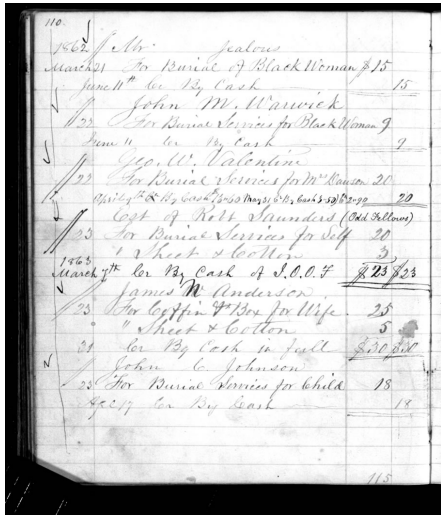 110.
1862 // Mr. Jealous
March 21 For Burial of Black Woman $15
June 11th Cr By Cash 15
John M. Warwick
// 22 For Burial Services for Black Woman 9
June 11 Cr By Cash 9
Geo. W. Valentine
// 22 For Burial Services for Mr Dawson 20
April 9th By Cash May 31 By Cash 20
Est of Robt Saunders (Odd Fellows)
// 23 For Burial Services for Self 20
" Sheet & Cotton 3
1863
March 7th Cr By Cash of I.O.O.F $23 $23
James W Anderson
// 23 For Coffin & Box for Wife 25
" Sheet & Cotton 5
31 Cr By Cash in full $30 $30
John C Johnson
// 23 For Burial Services for Child 18
17 Cr By Cash 18
115